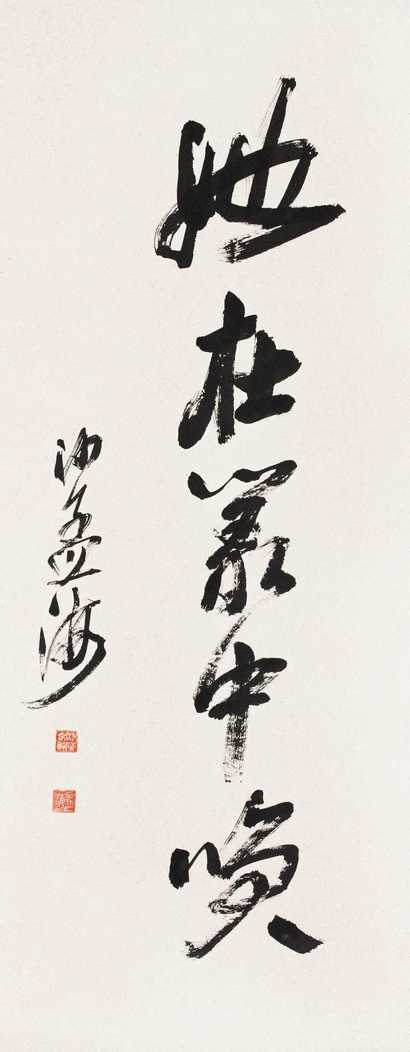 她在丛中笑
沙孟海